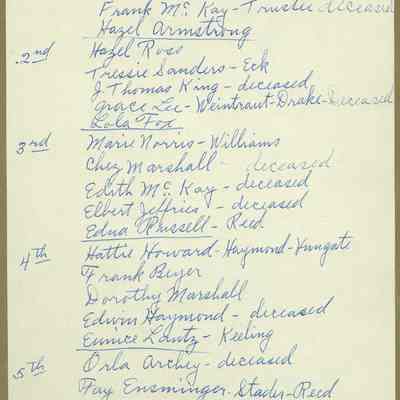 Frank Mc. Kay - Trustee deceased
Hazel Armstrong
2nd Hazel Ross
Tressie Sanders - Eck
J. Thomas King - deceased
Grace Lee - Weintraut - Drake - Deceased
Lola Fox
3rd Marie Norris - Williams
Chez Marshall - deceased
Edith Mc. Kay - deceased
Elbert Jeffries - deceased
Edna Russell - Reed
4th Hattie Howard - Haymond - Yungate
Frank Beyer
Dorothy Marshall
Edwin Haymond - deceased
Eunice Lantz - Keeling
5th Orla Archey - deceased
Fay Ensminger - Stader - Reed